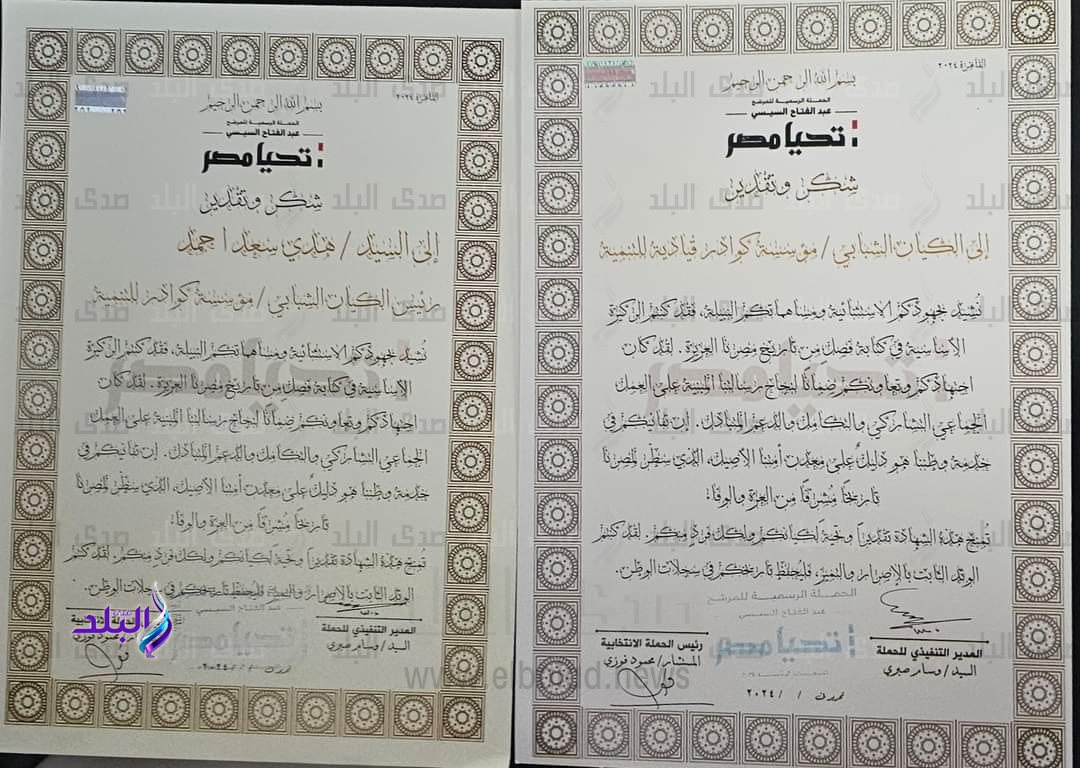 القاهرة ٢٠٢٤
بسم الله الرحمن الرحيم
الحملة الرسمية للمرشح
عبد الفتاح السيسي
تحيا مصر
شكر وتقدير
إلى الكيان الشبابي / مؤسسة كوادر قيادية للتنمية
نُشيد بجهودكم الاستثنائية ومساهماتكم النبيلة، فقد كنتم الركيزة
الأساسية في كتابة فصل من تاريخ مصرنا العزيزة. لقد كان
اجتهادكم وتعاونكم ضمانًا لنجاح رسالتنا المبنية على العمل
الجماعي التشاركي والتكامل والدعم المتبادل. إن تفانيكم في
خدمة وطننا لهو دليل على معدن أمتنا الأصيل، الذي سطّر لمصرنا
تاريخًا مُشرقًا من العزة والوفاء
تُمنح هذه الشهادة تقديرًا وتحيةً لكيانكم ولكل فردٍ منكم. لقد كنتم
الوتد الثابت بالإصرار والتميز، فليحفظ تاريخكم في سجلات الوطن.
الحملة الرسمية للمرشح
عبد الفتاح السيسي
تحيا مصر
المدير التنفيذي للحملة
السيد/ وسام صبري
رئيس الحملة الانتخابية
المستشار/ محمود فوزي
تحريرًا / / ٢٠٢٤
القاهرة ٢٠٢٤
بسم الله الرحمن الرحيم
الحملة الرسمية للمرشح
عبد الفتاح السيسي
تحيا مصر
شكر وتقدير
إلى السيد / هدي سعد احمد
رئيس الكيان الشبابي / مؤسسة كوادر للتنمية
نُشيد بجهودكم الاستثنائية ومساهماتكم النبيلة، فقد كنتم الركيزة
الأساسية في كتابة فصل من تاريخ مصرنا العزيزة. لقد كان
اجتهادكم وتعاونكم ضمانًا لنجاح رسالتنا المبنية على العمل
الجماعي التشاركي والتكامل والدعم المتبادل. إن تفانيكم في
خدمة وطننا لهو دليل على معدن أمتنا الأصيل، الذي سطّر لمصرنا
تاريخًا مُشرقًا من العزة والوفاء
تُمنح هذه الشهادة تقديرًا وتحيةً لكيانكم ولكل فردٍ منكم. لقد كنتم
الوتد الثابت بالإصرار والتميز، فليحفظ تاريخكم في سجلات الوطن.
عبد الفتاح السيسي
تحيا مصر
المدير التنفيذي للحملة
السيد/ وسام صبري
محمود فوزي
صدى البلد
www.elbalad.news